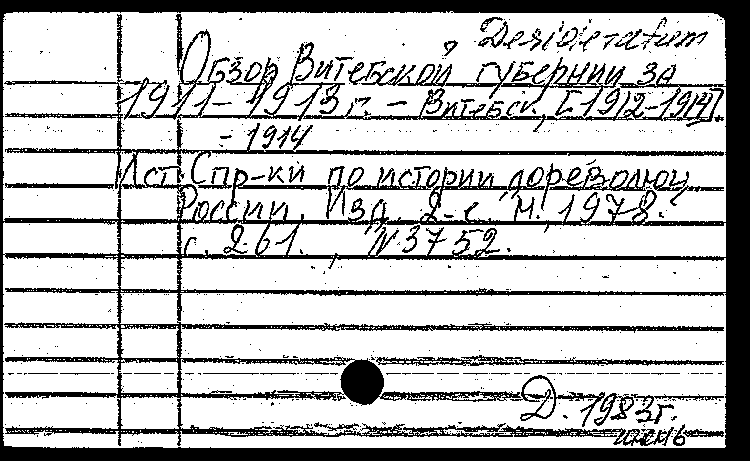 Desideratum
Обзор Витебской губернии за
1911-1913 г. - Витебск, [1912-1914].
- 1914
Ист. Спр-ки по истории дореволюц.
России. Изд. 2-е. М., 1978.
с. 261. , N 3752.
Д. 1983г.
июнь